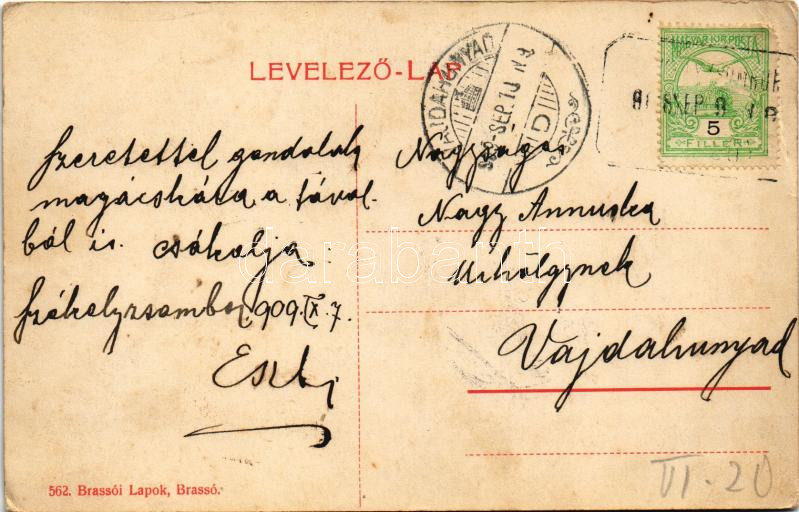 LEVELEZŐ-LAP
VAJDAHUNYAD
909 SEP. 10
MAGYAR KIR. POSTA
909 SEP 9
5
FILLÉR
Szeretettel gondolok
magácskára a távol-
ból is. csókolja:
Székelyzsombor 909. IX. 7.
Eszti
Nagyságos
Nagy Annuska
Urhölgynek
Vajdahunyad
darabanth
562. Brassói Lapok, Brassó.
VI-20